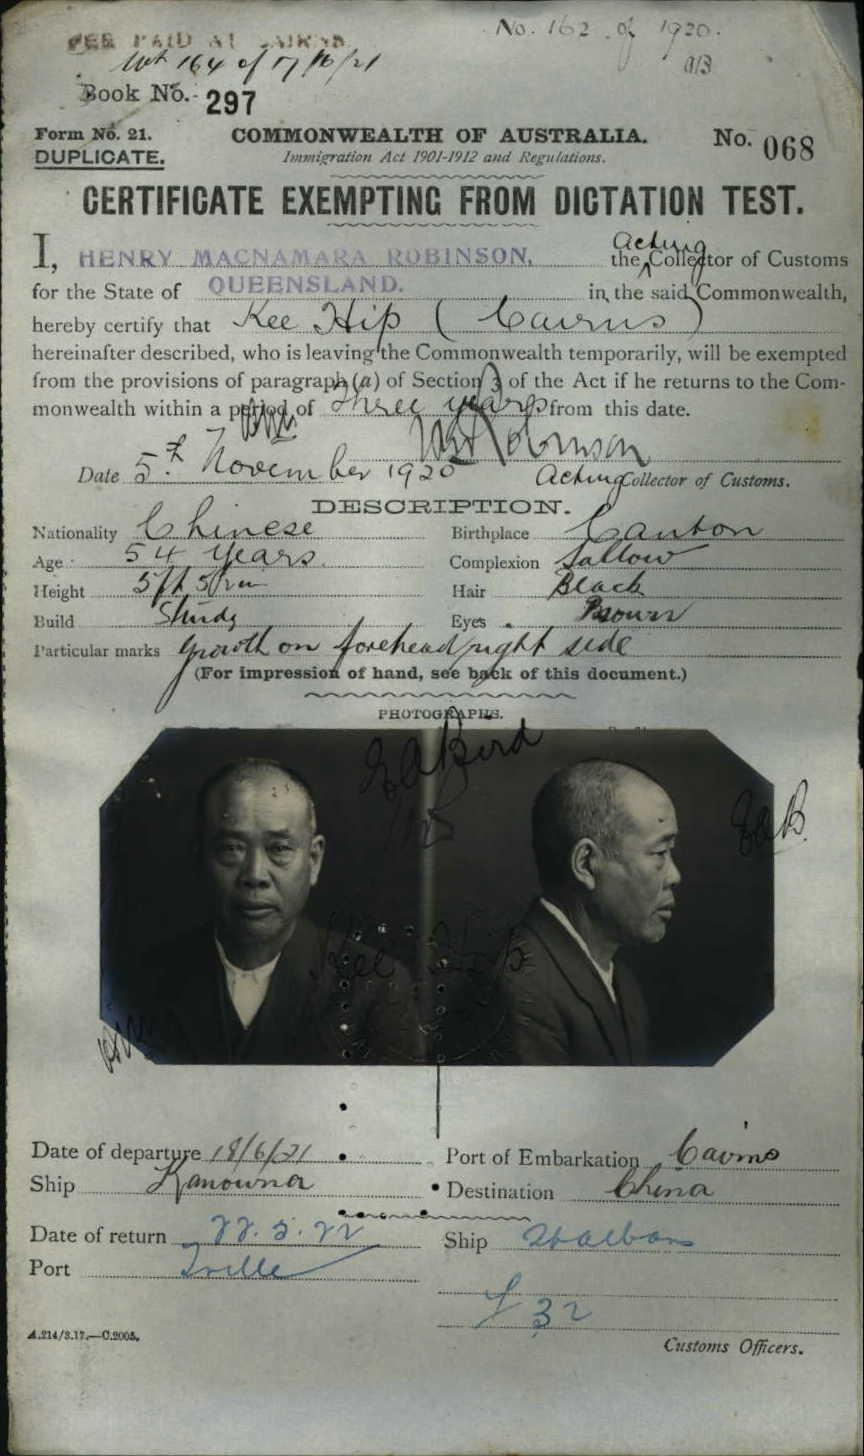 No. 162 of 1920.
FEE PAID AT CAIRNS
164 of 17/6/21
Book No. 297
Form No. 21.
COMMONWEALTH OF AUSTRALIA.
No. 068
DUPLICATE.
Immigration Act 1901-1912 and Regulations.
CERTIFICATE EXEMPTING FROM DICTATION TEST.
I, HENRY MACNAMARA ROBINSON, the Acting Collector of Customs
for the State of QUEENSLAND. in the said Commonwealth,
hereby certify that Kee Hip (Cairns)
hereinafter described, who is leaving the Commonwealth temporarily, will be exempted
from the provisions of paragraph (a) of Section 3 of the Act if he returns to the Com-
monwealth within a period of Three years from this date.
Date 5th November 1920 Acting Collector of Customs.
DESCRIPTION.
Nationality Chinese Birthplace Canton
Age 54 years. Complexion Sallow
Height 5ft 5in Hair Black
Build Sturdy Eyes Brown
Particular marks growth on forehead right side
(For impression of hand, see back of this document.)
PHOTOGRAPHS.
E A Bird
EAB.
Kee Hip
Date of departure 18/6/21 Port of Embarkation Cairns
Ship Kanowna Destination China
Date of return 22.5.22 Ship St Albans
Port Tville
32
A.214/3.17.—C.2005.
Customs Officers.